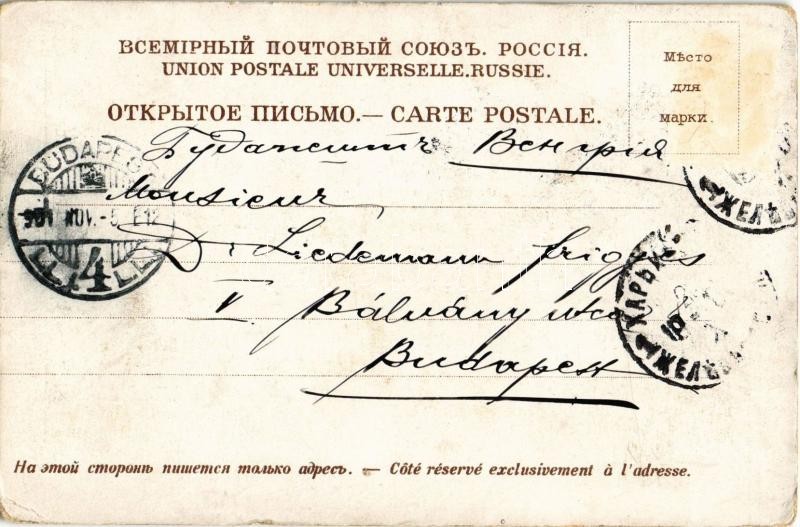 ВСЕМІРНЫЙ ПОЧТОВЫЙ СОЮЗЪ. РОССІЯ.
UNION POSTALE UNIVERSELLE.RUSSIE.
ОТКРЫТОЕ ПИСЬМО.— CARTE POSTALE.
Мѣсто
для
марки.
Будапештъ Венгрія
Monsieur
Dr Liedemann Frigyes
V Bálvány utca
Budapest
BUDAPES
901 NOV.-5
4
ХАРЬК
10
ЖЕЛѢ
ЖЕЛѢ
На этой сторонѣ пишется только адресъ. — Côté réservé exclusivement à l'adresse.